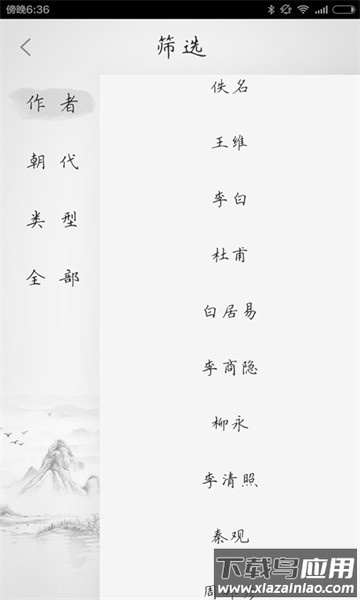 傍晚6:36
筛选
作者
朝代
类型
全部
佚名
王维
李白
杜甫
白居易
李商隐
柳永
李清照
秦观
周
下载鸟应用
www.xiazainiao.com